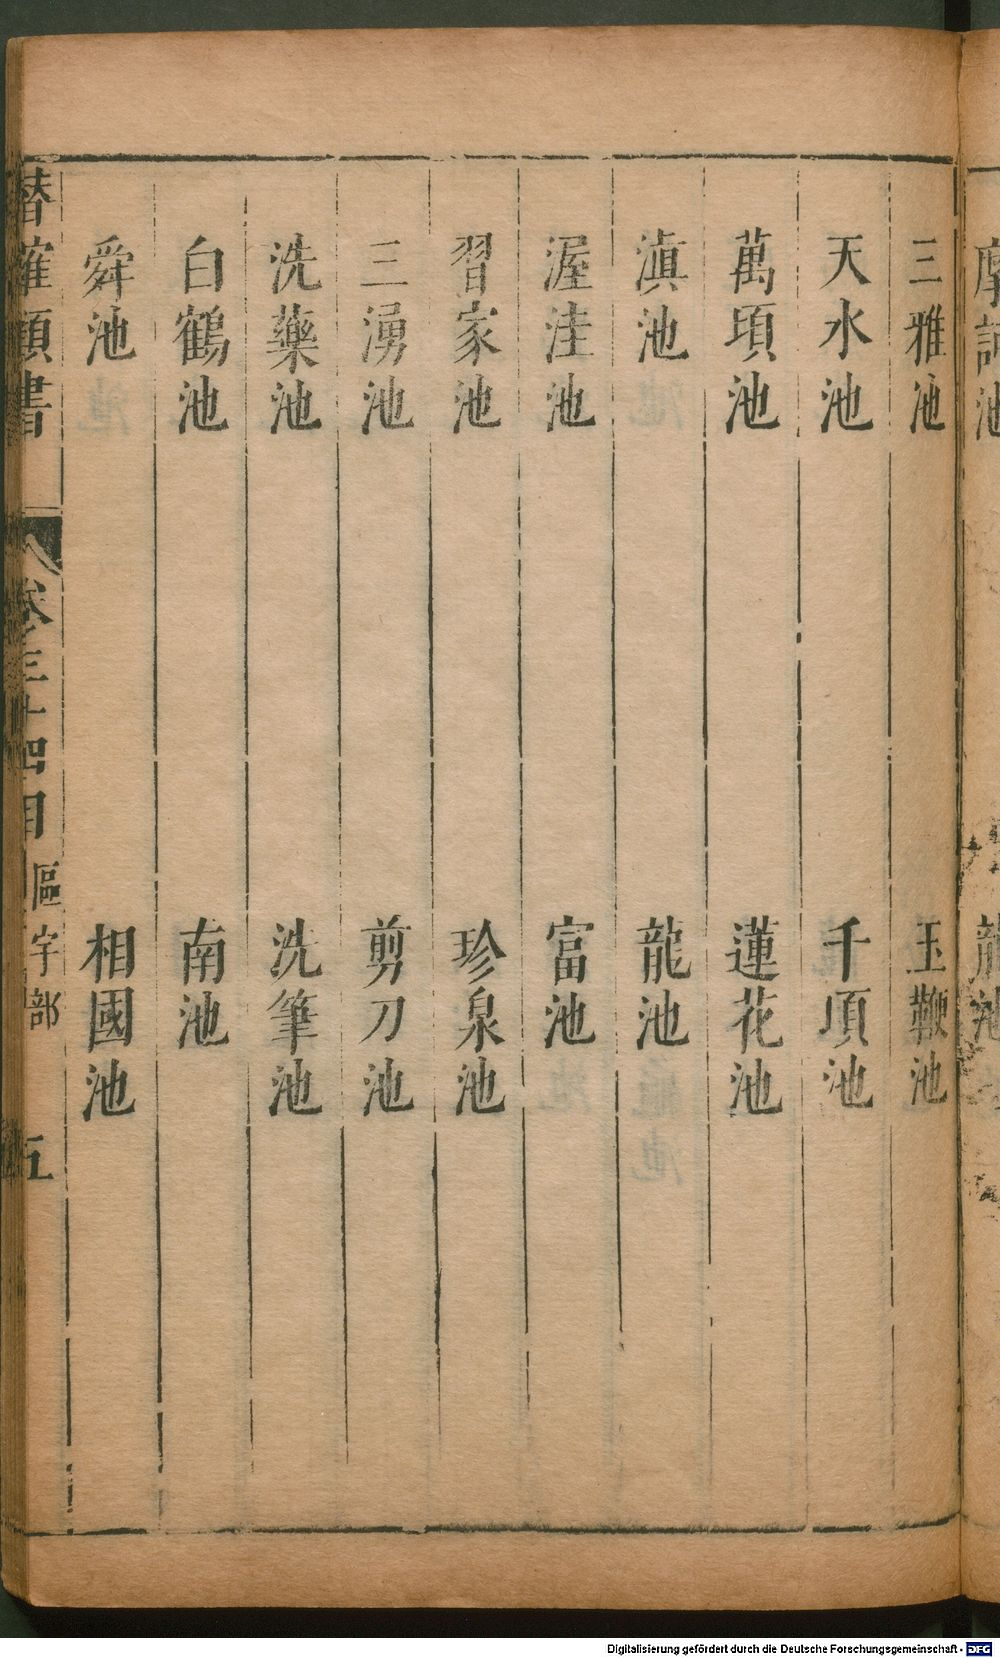 三雅池 玉鞭池
天水池 千頃池
萬頃池 蓮花池
滇池 龍池
渥洼池 富池
習家池 珍泉池
三湧池 剪刀池
洗藥池 洗筆池
白鶴池 南池
舜池 相國池
潛確類書 卷三十四目 區宇部 五
Digitalisierung gefördert durch die Deutsche Forschungsgemeinschaft - DFG